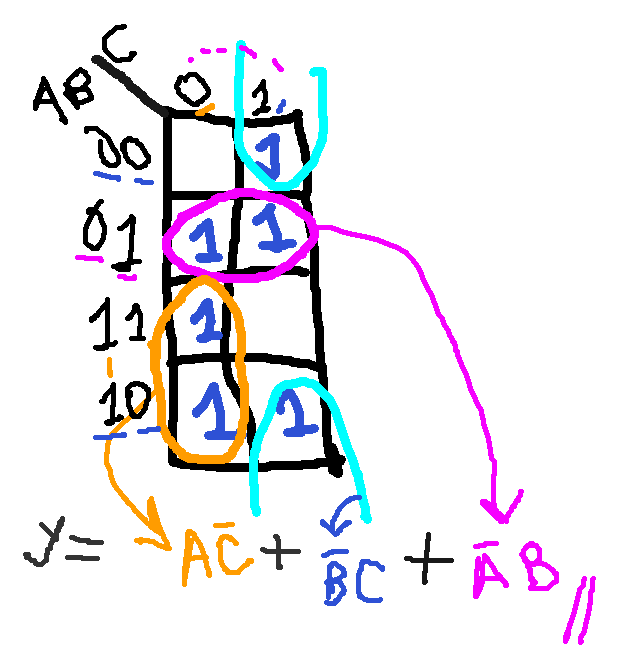 C
AB 0 1
00 1
01 1 1
11 1
10 1 1
y = AC̅ + B̅C + A̅B //